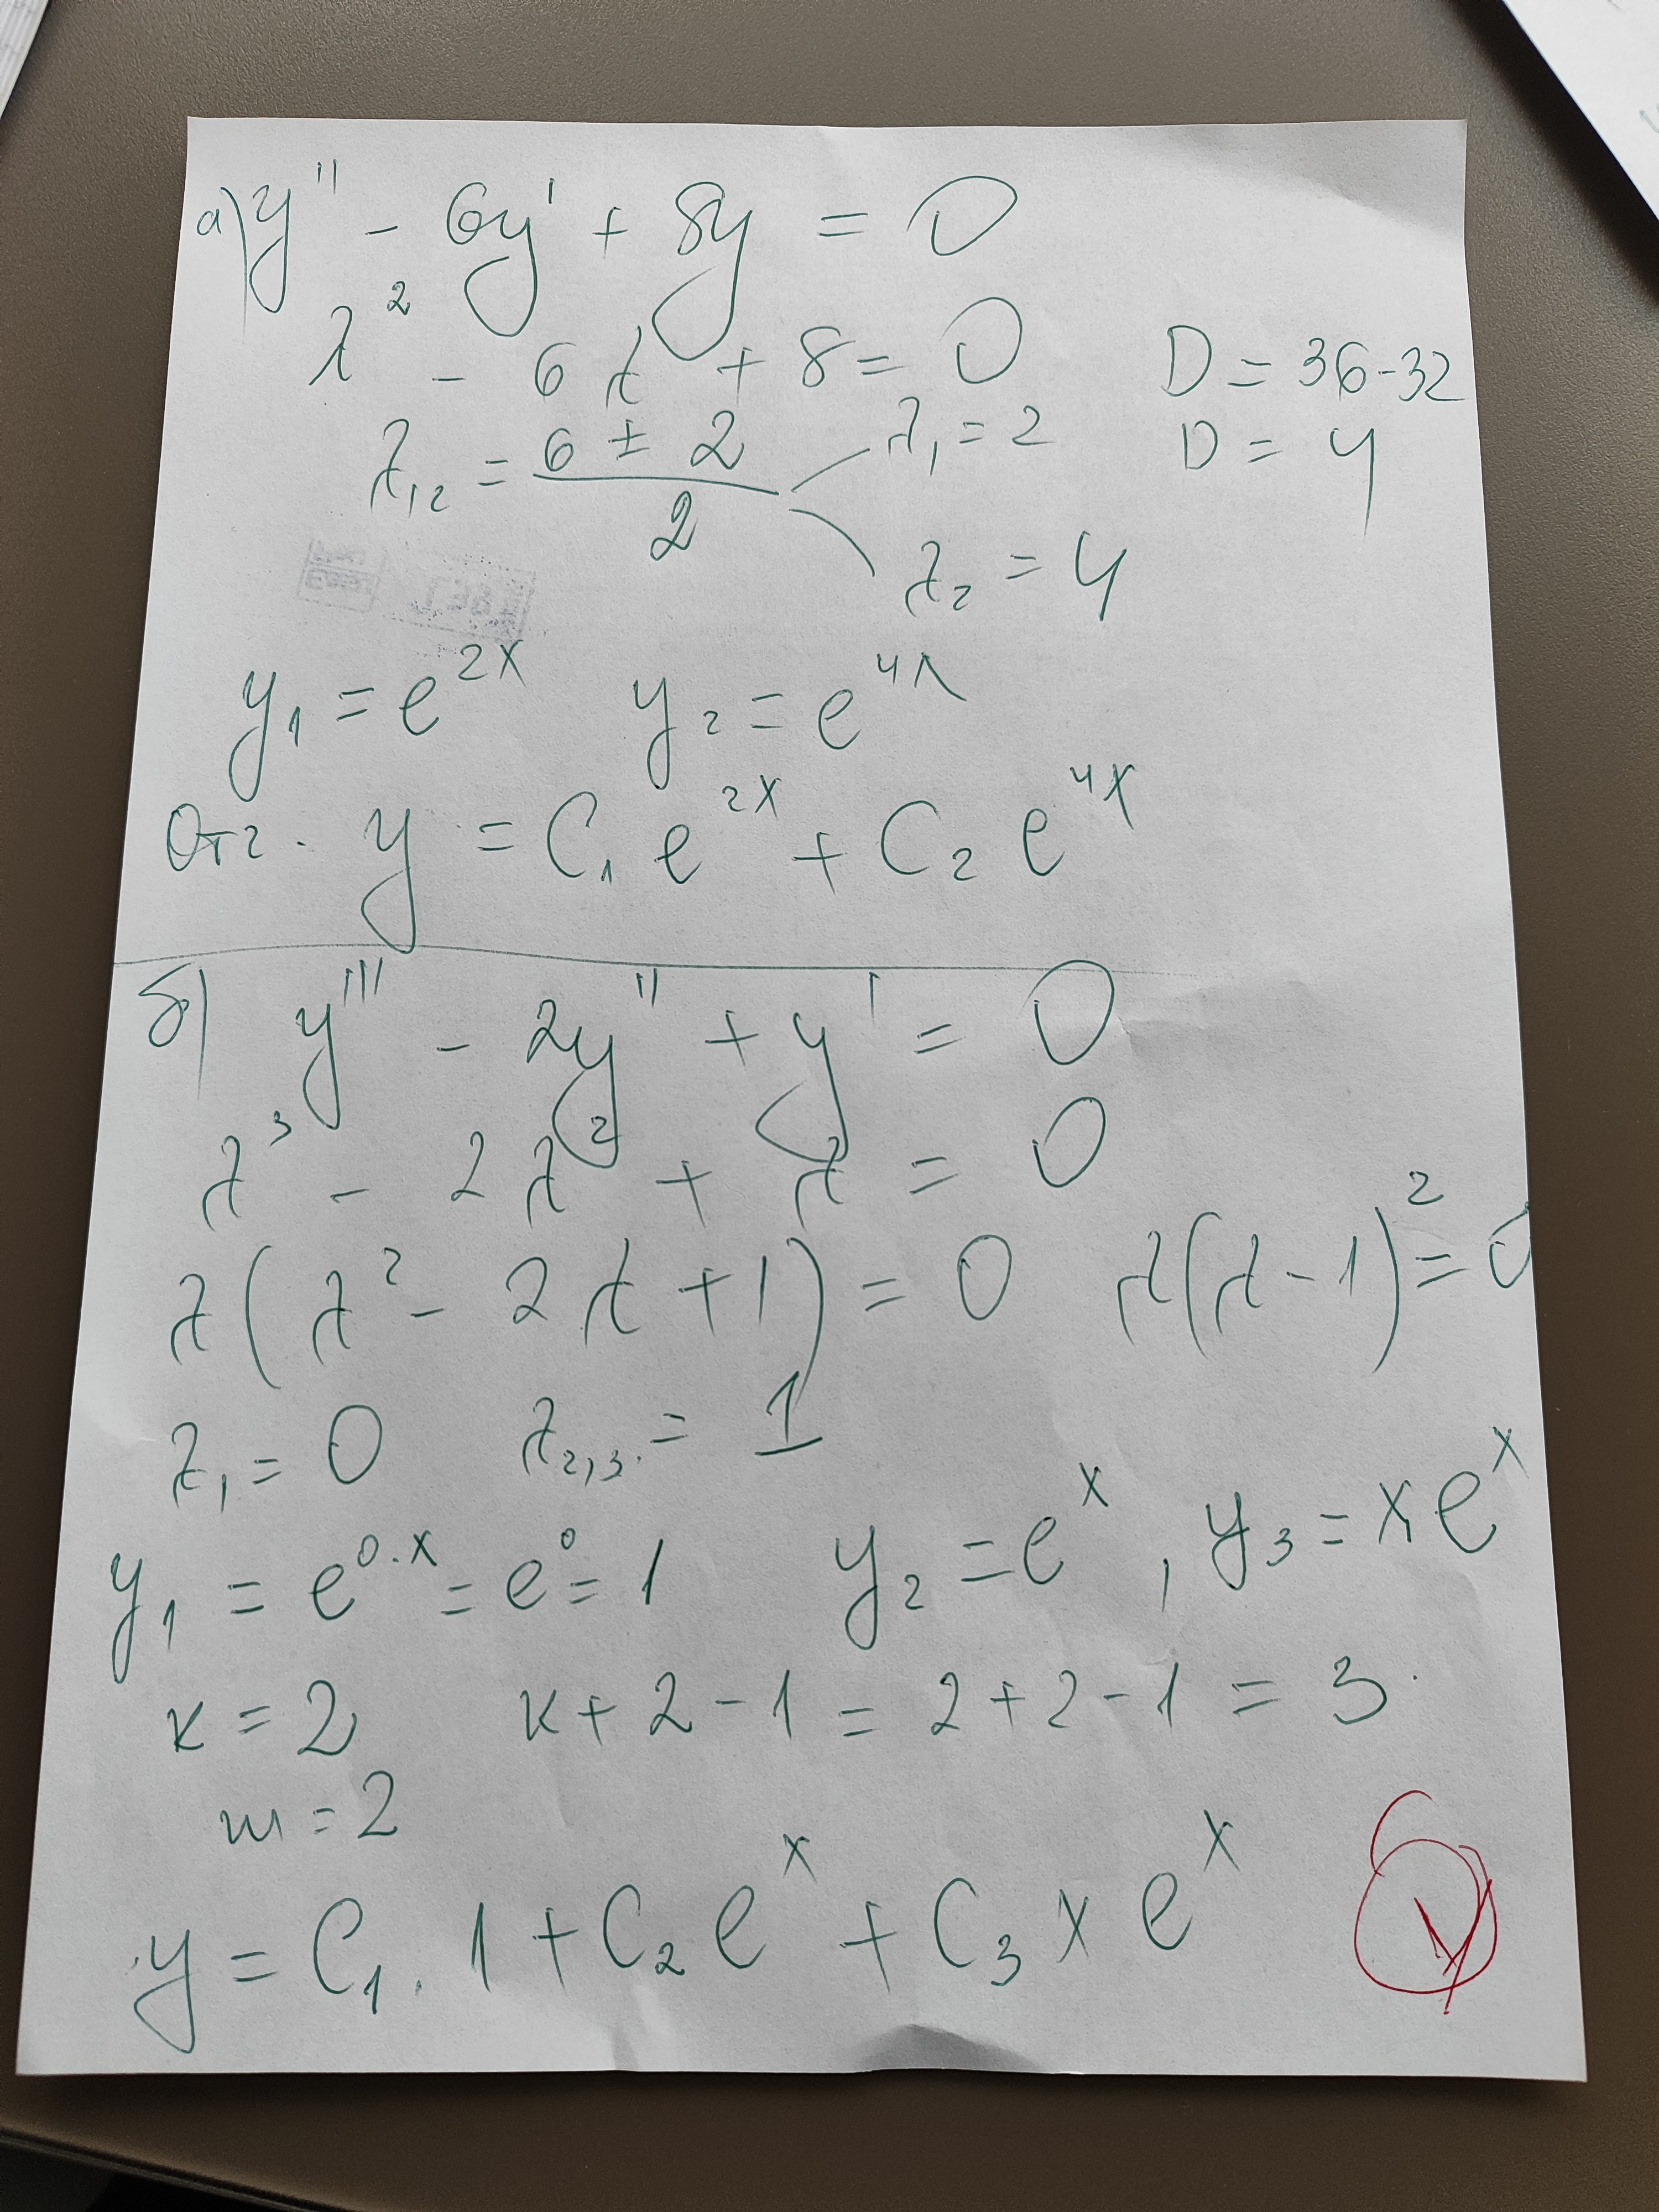 а) y'' - 6y' + 8y = 0
λ² - 6λ + 8 = 0 D = 36-32
λ₁₂ = (6 ± 2)/2 λ₁ = 2 D = 4
λ₂ = 4
y₁ = e^2x y₂ = e^4x
Отг. y = C₁ e^2x + C₂ e^4x
б) y''' - 2y'' + y' = 0
λ³ - 2λ² + λ = 0
λ(λ² - 2λ + 1) = 0 λ(λ - 1)² = 0
λ₁ = 0 λ₂,₃ = 1
y₁ = e^0.x = e^0 = 1 y₂ = e^x, y₃ = x e^x
к = 2 к + 2 - 1 = 2 + 2 - 1 = 3
m = 2
y = C₁ . 1 + C₂ e^x + C₃ x e^x